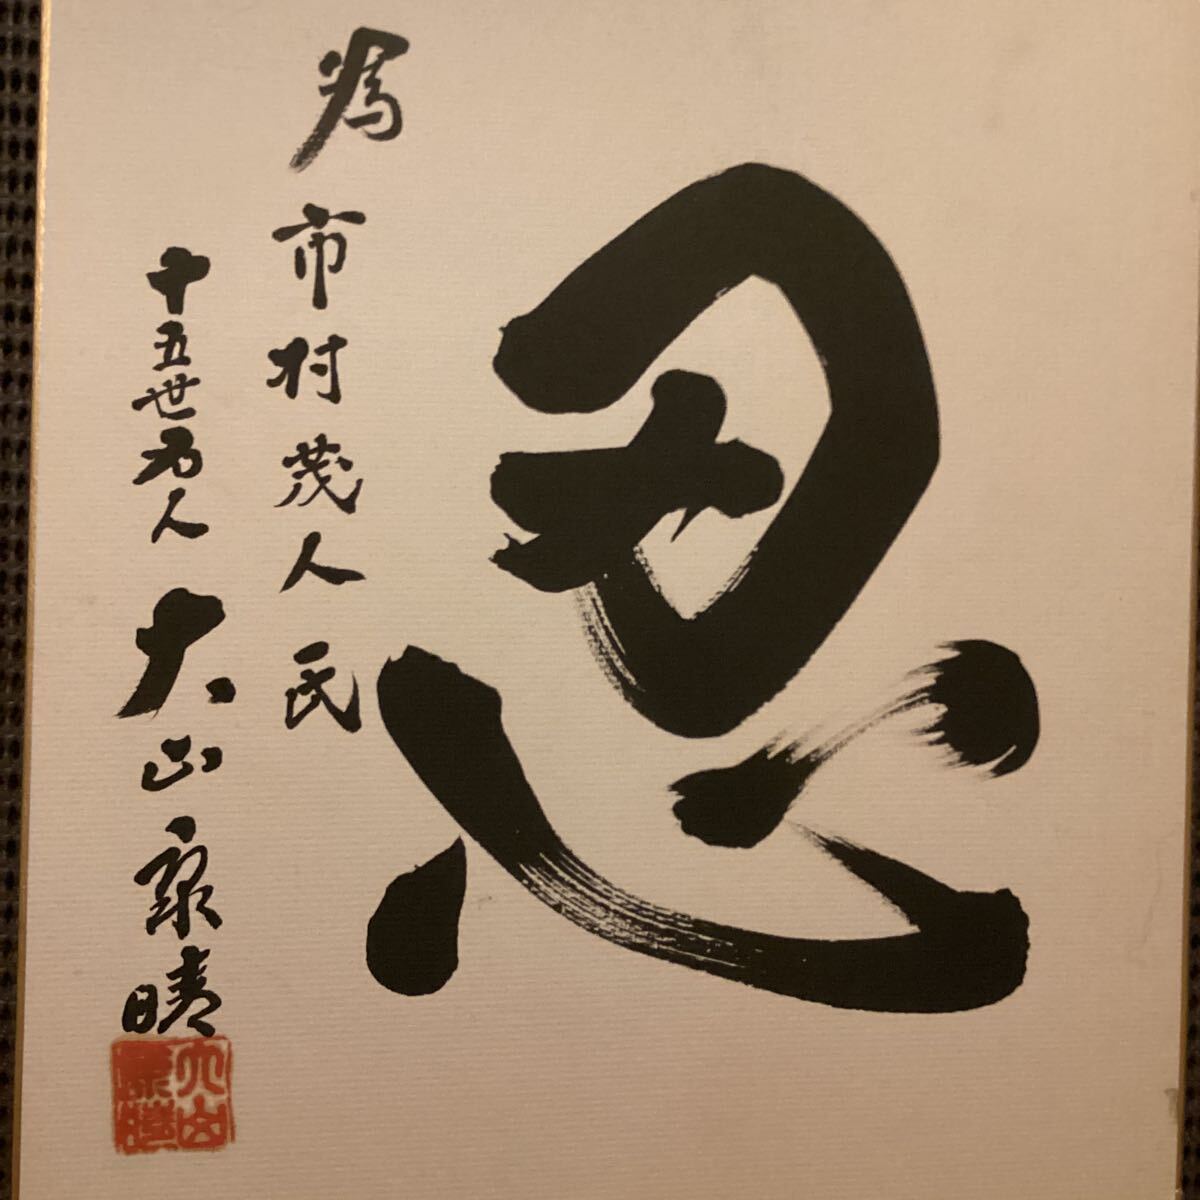 忍
為市村茂人氏
十五世名人 大山康晴
大山
康晴